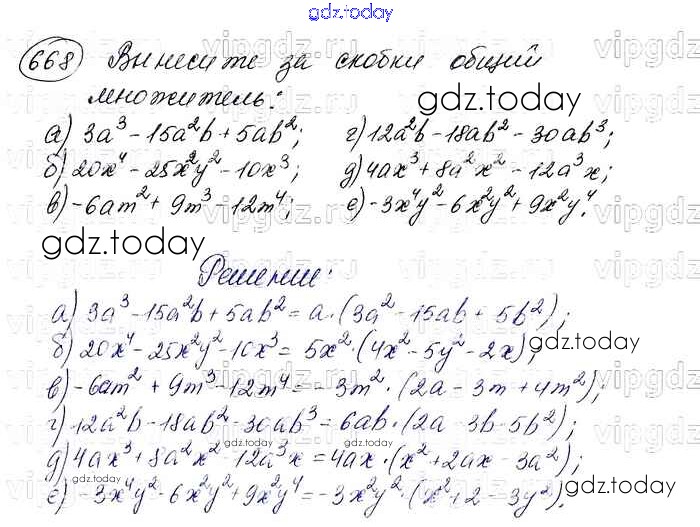 gdz.today
668) Вынесите за скобки общий
множитель:
gdz.today
а) 3a³ - 15a²b + 5ab²; г) 12a²b - 18ab² - 30ab³;
б) 20x⁴ - 25x²y² - 10x³; д) 4ax³ + 8a²x² - 12a³x;
в) -6am² + 9m³ - 12m⁴; е) -3x⁴y² - 6x²y² + 9x²y⁴.
gdz.today
Решение:
а) 3a³ - 15a²b + 5ab² = a · (3a² - 15ab + 5b²);
б) 20x⁴ - 25x²y² - 10x³ = 5x² · (4x² - 5y² - 2x);
gdz.today
в) -6am² + 9m³ - 12m⁴ = -3m² · (2a - 3m + 4m²);
г) 12a²b - 18ab² - 30ab³ = 6ab · (2a - 3b - 5b²);
gdz.today gdz.today
д) 4ax³ + 8a²x² - 12a³x = 4ax · (x² + 2ax - 3a²);
е) -3x⁴y² - 6x²y² + 9x²y⁴ = -3x²y² · (x² + 2 - 3y²).
gdz.today
vipgdz.ru